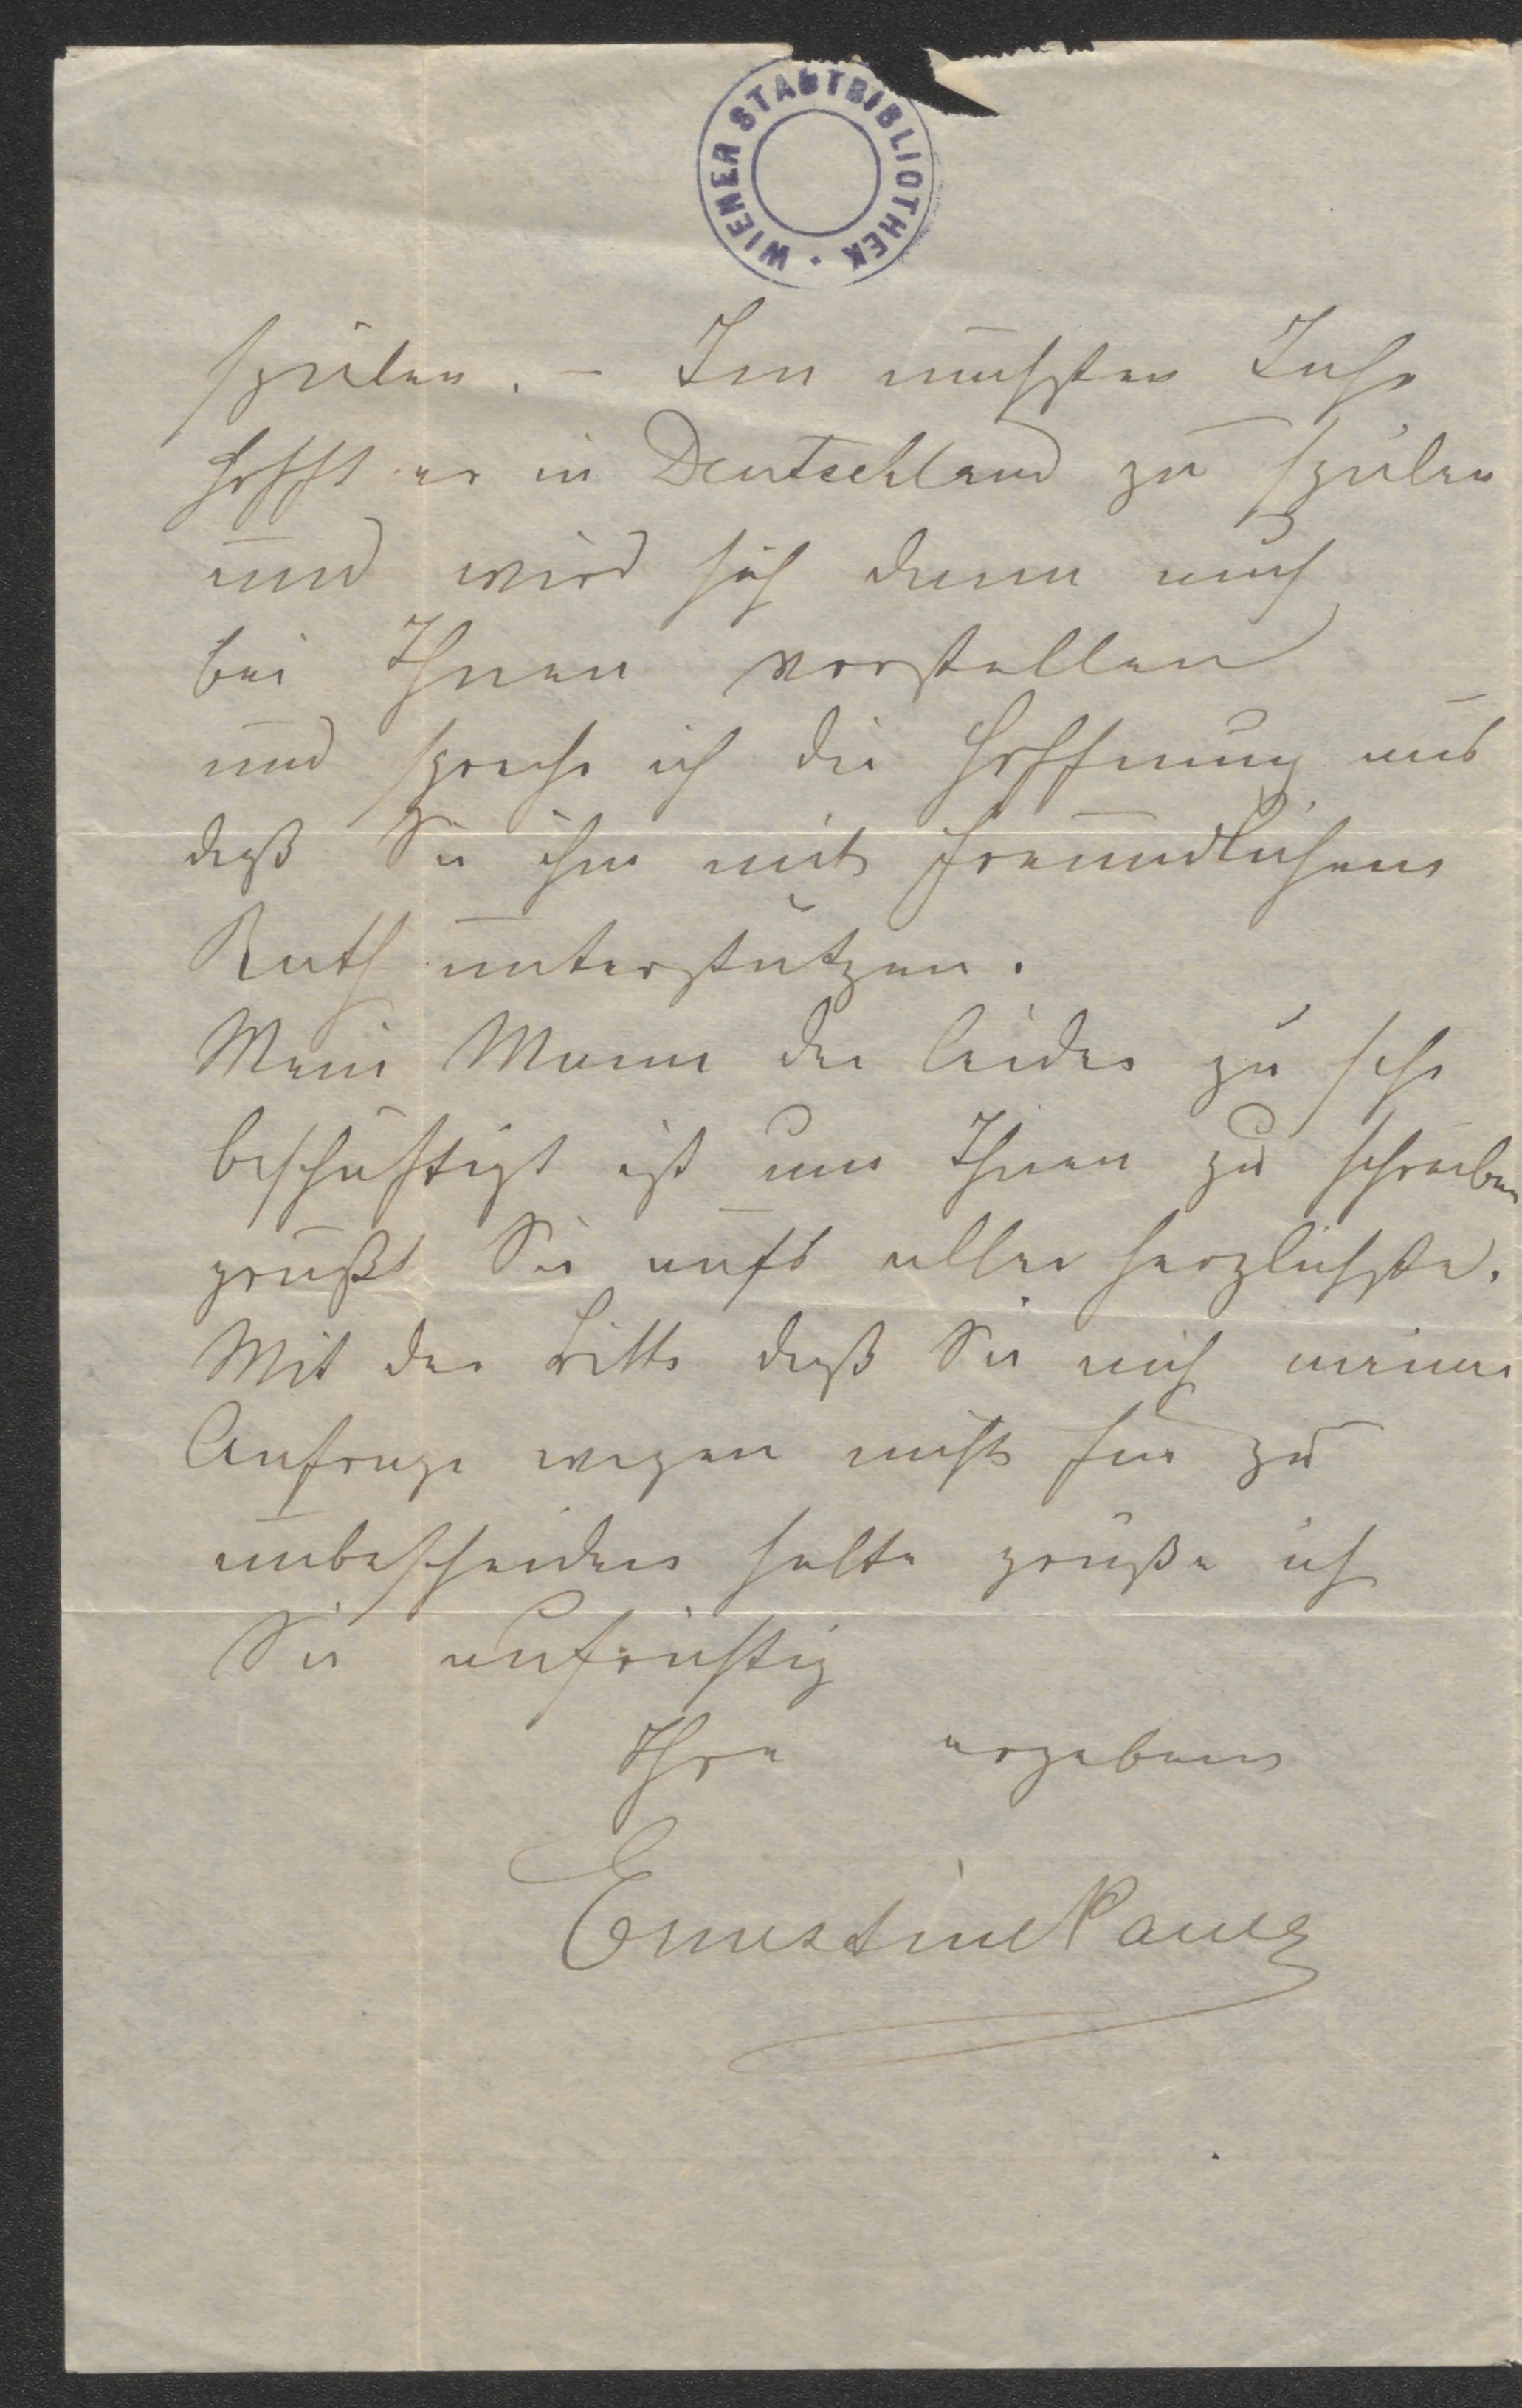 WIENER STADTBIBLIOTHEK
spielen. – Im nächsten Jahr
hofft er in Deutschland zu spielen
und wird sich dann auch
bei Ihnen vorstellen
und spreche ich die Hoffnung aus
daß Sie ihm mit freundlichem
Rath unterstützen.
Mein Mann der leider zu sehr
beschäftigt ist um Ihnen zu schreiben
grüßt Sie aufs aller herzlichste.
Mit der Bitte daß Sie mich meiner
Anfrage wegen nicht für zu
unbescheiden halten grüße ich
Sie aufrichtig
Ihre ergebene
Ernestine Pauer